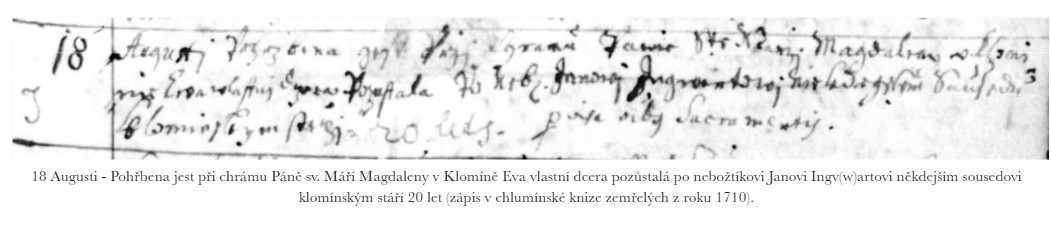 18 Augusti Pohrbena gest Przi Chramu Panie Sté Marzi Magdaleny w Klomi
nie Ewa wlastnj dcera Pozustala Po Neb. Janowj Ingwartowj niekdegssem Sausedu
klominskym starzj 20 leth. provisa oibq Sacramentis.
18 Augusti - Pohřbena jest při chrámu Páně sv. Máří Magdaleny v Klomíně Eva vlastní dcera pozůstalá po nebožtíkovi Janovi Ingv(w)artovi někdejším sousedovi
klomínským stáří 20 let (zápis v chlumínské knize zemřelých z roku 1710).